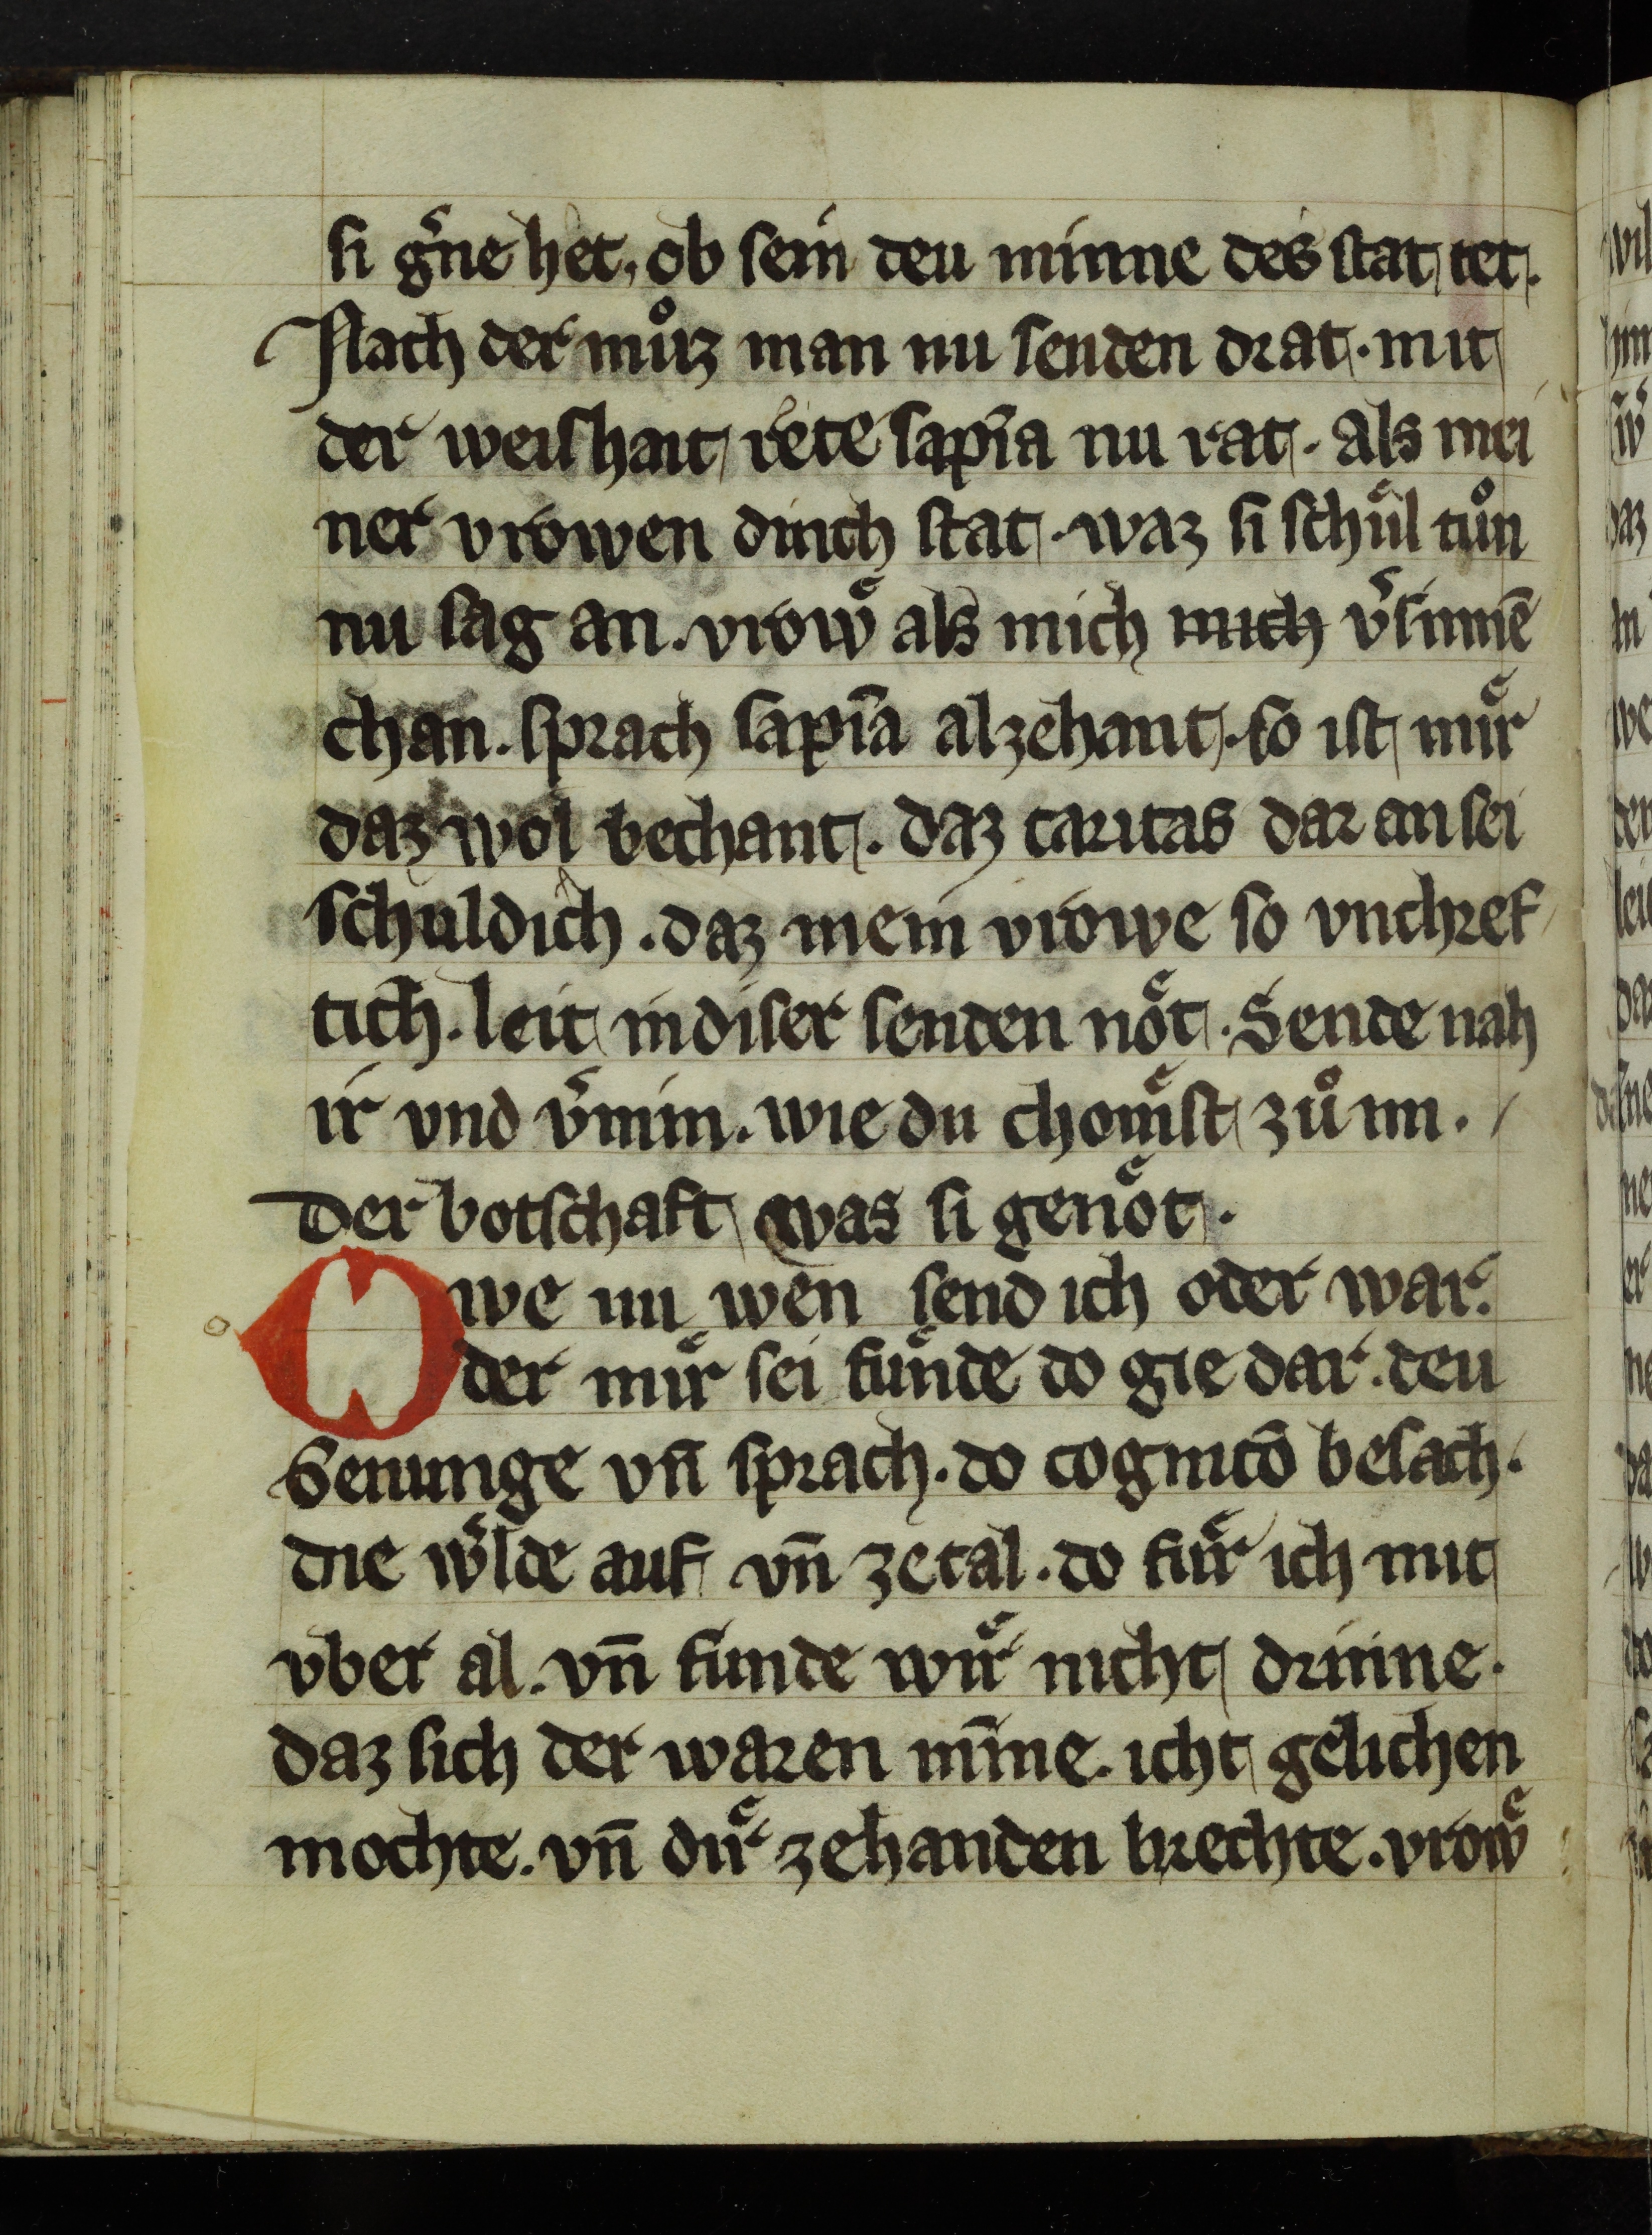 si g͛ne het, ob sein deu minne des stat tet.
Nach der můz man nu senden drat. mit
der weishait rete sap̃ia nu rat. als mei
ner vrowen dinch stat. waz si schuͤl tůn
nu sag an. vrowͤ als mich mich v͛sinnē
chan. sprach sap̃ia alzehant. so ist muͤr
daz wol bechant. daz caritas dar an sei
schuldich. daz mein vrowe so vnchref
tich. leit in diser senden noͤt. Sende nah
ir vnd v͛nim. wie du chomͤst zů im.
Der botschaft was si genoͤt.
Owe nu wen send ich oder war.
der muͤr sei fuͤnde do gie dar. deu
Senunge vn̄ sprach. do cognicō besach.
die w͛lde auf vn̄ zetal. do fuͤr ich mit
vber al. vn̄ funde wiͤr nicht drinne.
daz sich der waren mīne. icht gelichen
mochte. vn̄ diͤr zehanden brechte. vrowͤ